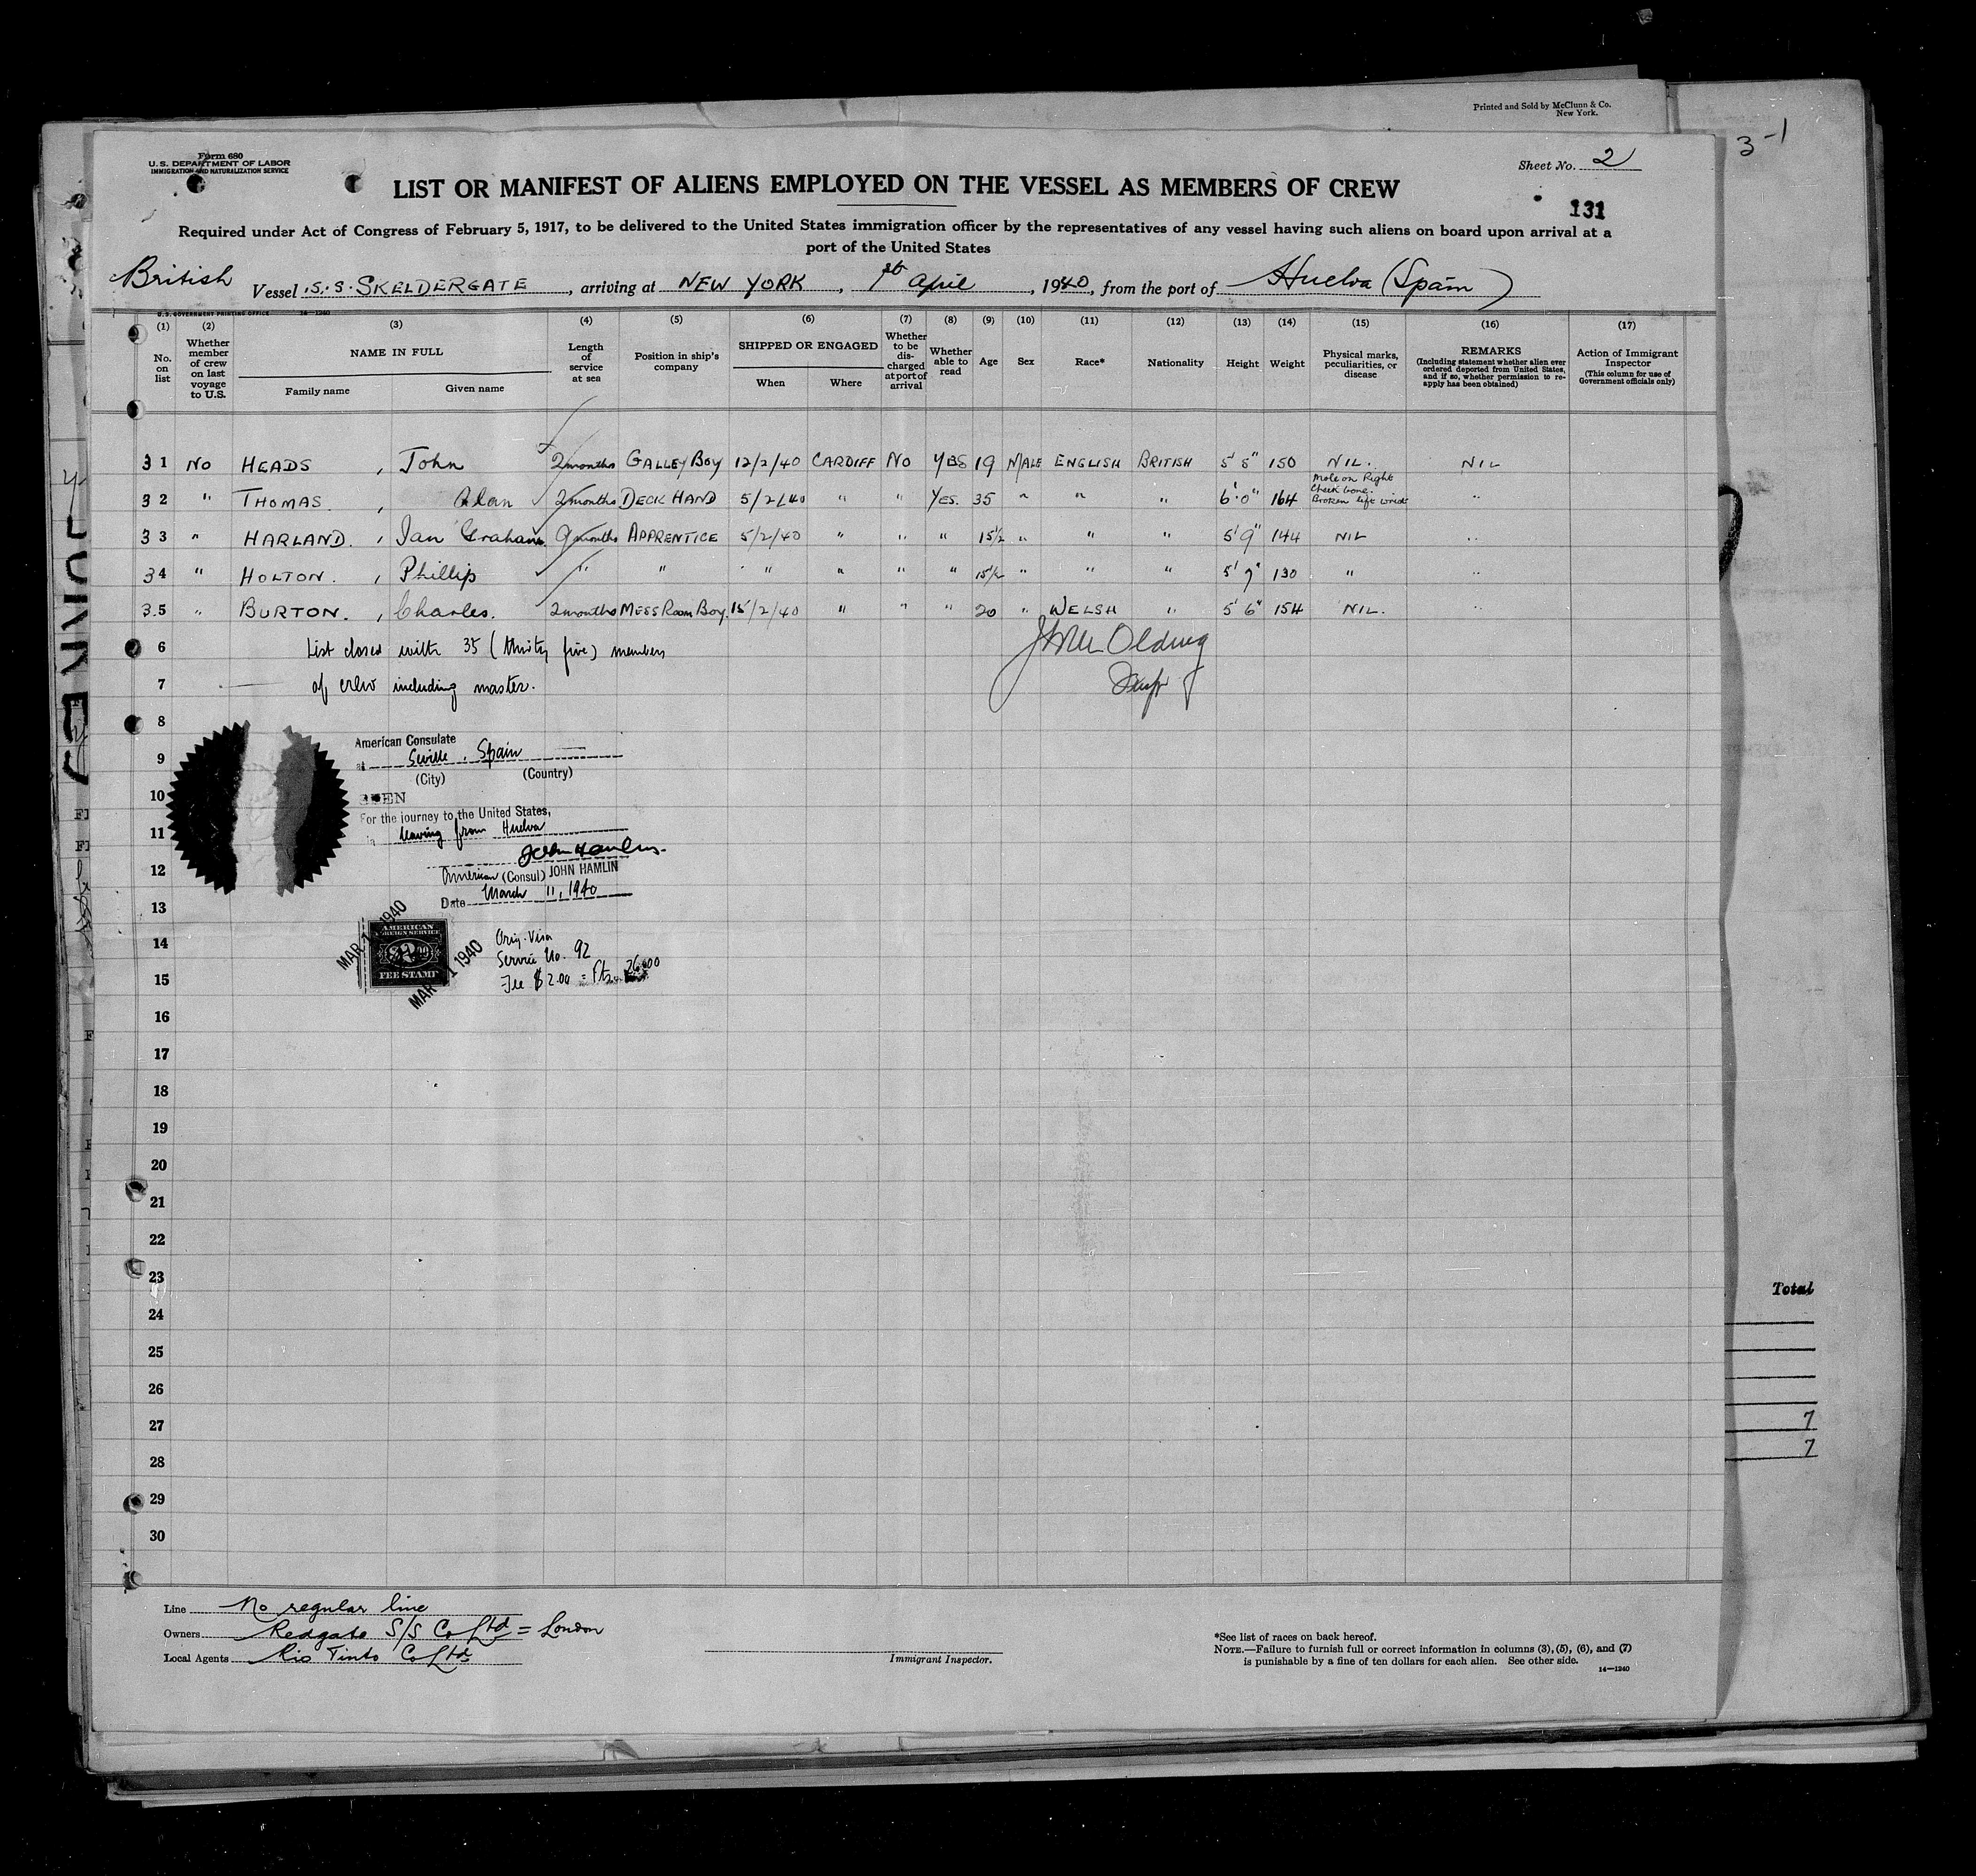 Printed and Sold by McClunn & Co.
New York.
3-1
Form 680
U. S. DEPARTMENT OF LABOR
IMMIGRATION AND NATURALIZATION SERVICE
Sheet No. 2
LIST OR MANIFEST OF ALIENS EMPLOYED ON THE VESSEL AS MEMBERS OF CREW
131
Required under Act of Congress of February 5, 1917, to be delivered to the United States immigration officer by the representatives of any vessel having such aliens on board upon arrival at a
port of the United States
British Vessel S.S. SKELDERGATE, arriving at NEW YORK, 1st April, 1940, from the port of Huelva (Spain)
U.S. GOVERNMENT PRINTING OFFICE 14—1240
(1) (2) (3) (4) (5) (6) (7) (8) (9) (10) (11) (12) (13) (14) (15) (16) (17)
No. on list
Whether member of crew on last voyage to U.S.
NAME IN FULL
Family name Given name
Length of service at sea
Position in ship's company
SHIPPED OR ENGAGED
When Where
Whether to be discharged at port of arrival
Whether able to read
Age
Sex
Race*
Nationality
Height
Weight
Physical marks, peculiarities, or disease
REMARKS
(Including statement whether alien ever ordered deported from United States, and if so, whether permission to re-apply has been obtained)
Action of Immigrant Inspector
(This column for use of Government officials only)
31 No HEADS, John 2 months GALLEY BOY 12/2/40 CARDIFF NO YES 19 MALE ENGLISH BRITISH 5' 8" 150 NIL. NIL
32 " THOMAS, Alan 2 months DECK HAND 5/2/40 " " YES. 35 " " " 6' 0" 164 Mole on Right Cheek bone. Broken left wrist "
33 " HARLAND, Ian Graham 9 months APPRENTICE 5/2/40 " " " 15½ " " " 5' 9" 144 NIL "
34 " HOLTON, Phillip " " " " " " 15½ " " " 5' 9" 130 " "
35 " BURTON, Charles. 2 months MESS ROOM BOY. 15/2/40 " " " 20 " WELSH " 5' 6" 154 NIL.
6 List closed with 35 (thirty five) members
7 of crew including master.
Olding
8
American Consulate
9 at Seville, Spain
(City) (Country)
10
For the journey to the United States,
11 leaving from Huelva
John Hamlin
12 American (Consul) JOHN HAMLIN
Date March 11, 1940
13
MAR 1 1940
AMERICAN
FOREIGN SERVICE
$2.00
FEE STAMP
MAR 1 1940
14 Orig. Visa
Service No. 92
15 Fee $2.00 = Pts. 26.00
16
17
18
19
20
21
22
23
24
25
26
27
28
29
30
Total
7
7
Line No regular line
Owners Redgate S/S Co Ltd = London
Local Agents Rio Tinto Co Ltd
Immigrant Inspector.
*See list of races on back hereof.
NOTE.—Failure to furnish full or correct information in columns (3), (5), (6), and (7)
is punishable by a fine of ten dollars for each alien. See other side.
14—1240